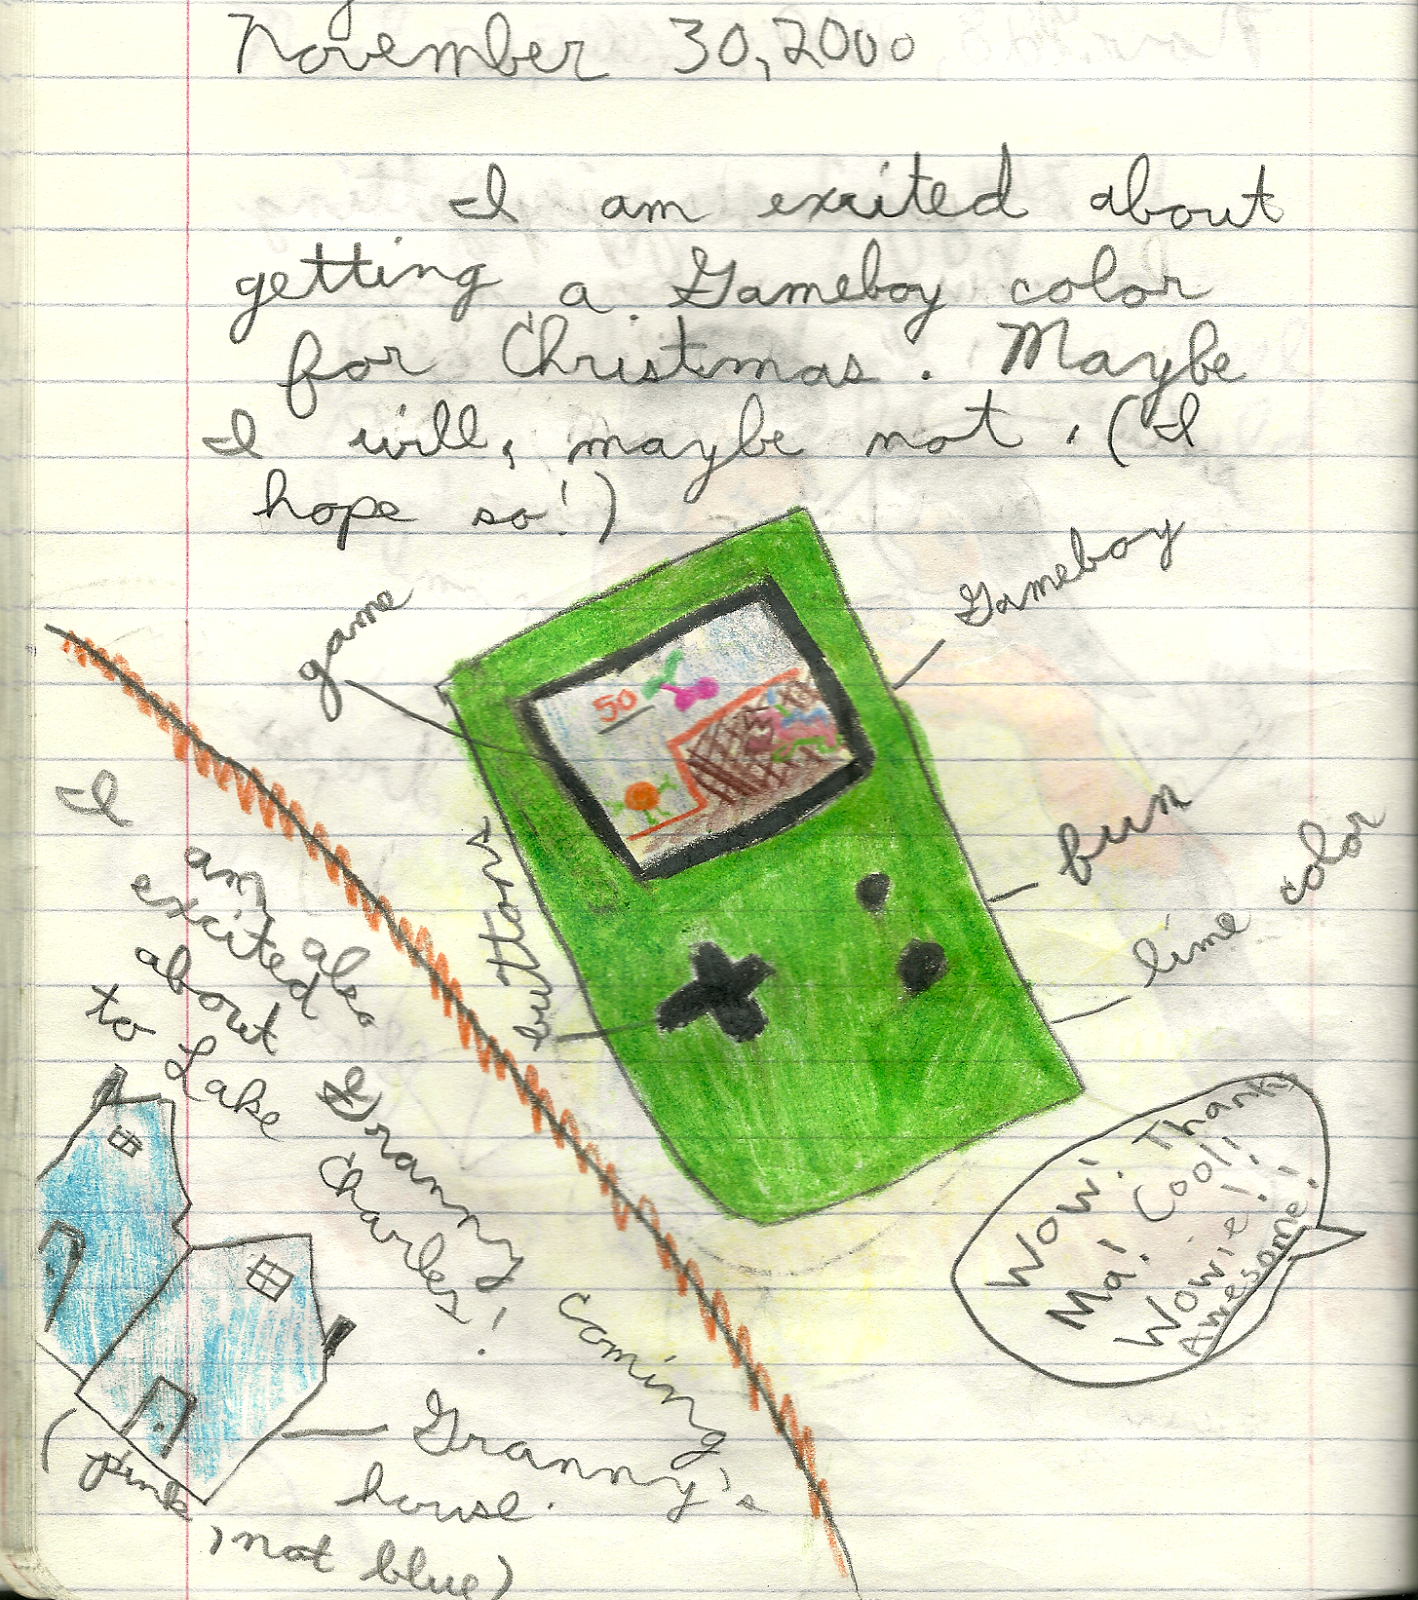 November 30, 2000
I am excited about
getting a Gameboy color
for Christmas. Maybe
I will, maybe not. (I
hope so!)
game
Gameboy
50
buttons
fun
lime color
Wow! Thanks
Ma! Cool!
Wowie!
Awesome!
I am also
excited
about Granny coming
to Lake Charles!
Granny's
house.
(pink, not blue)